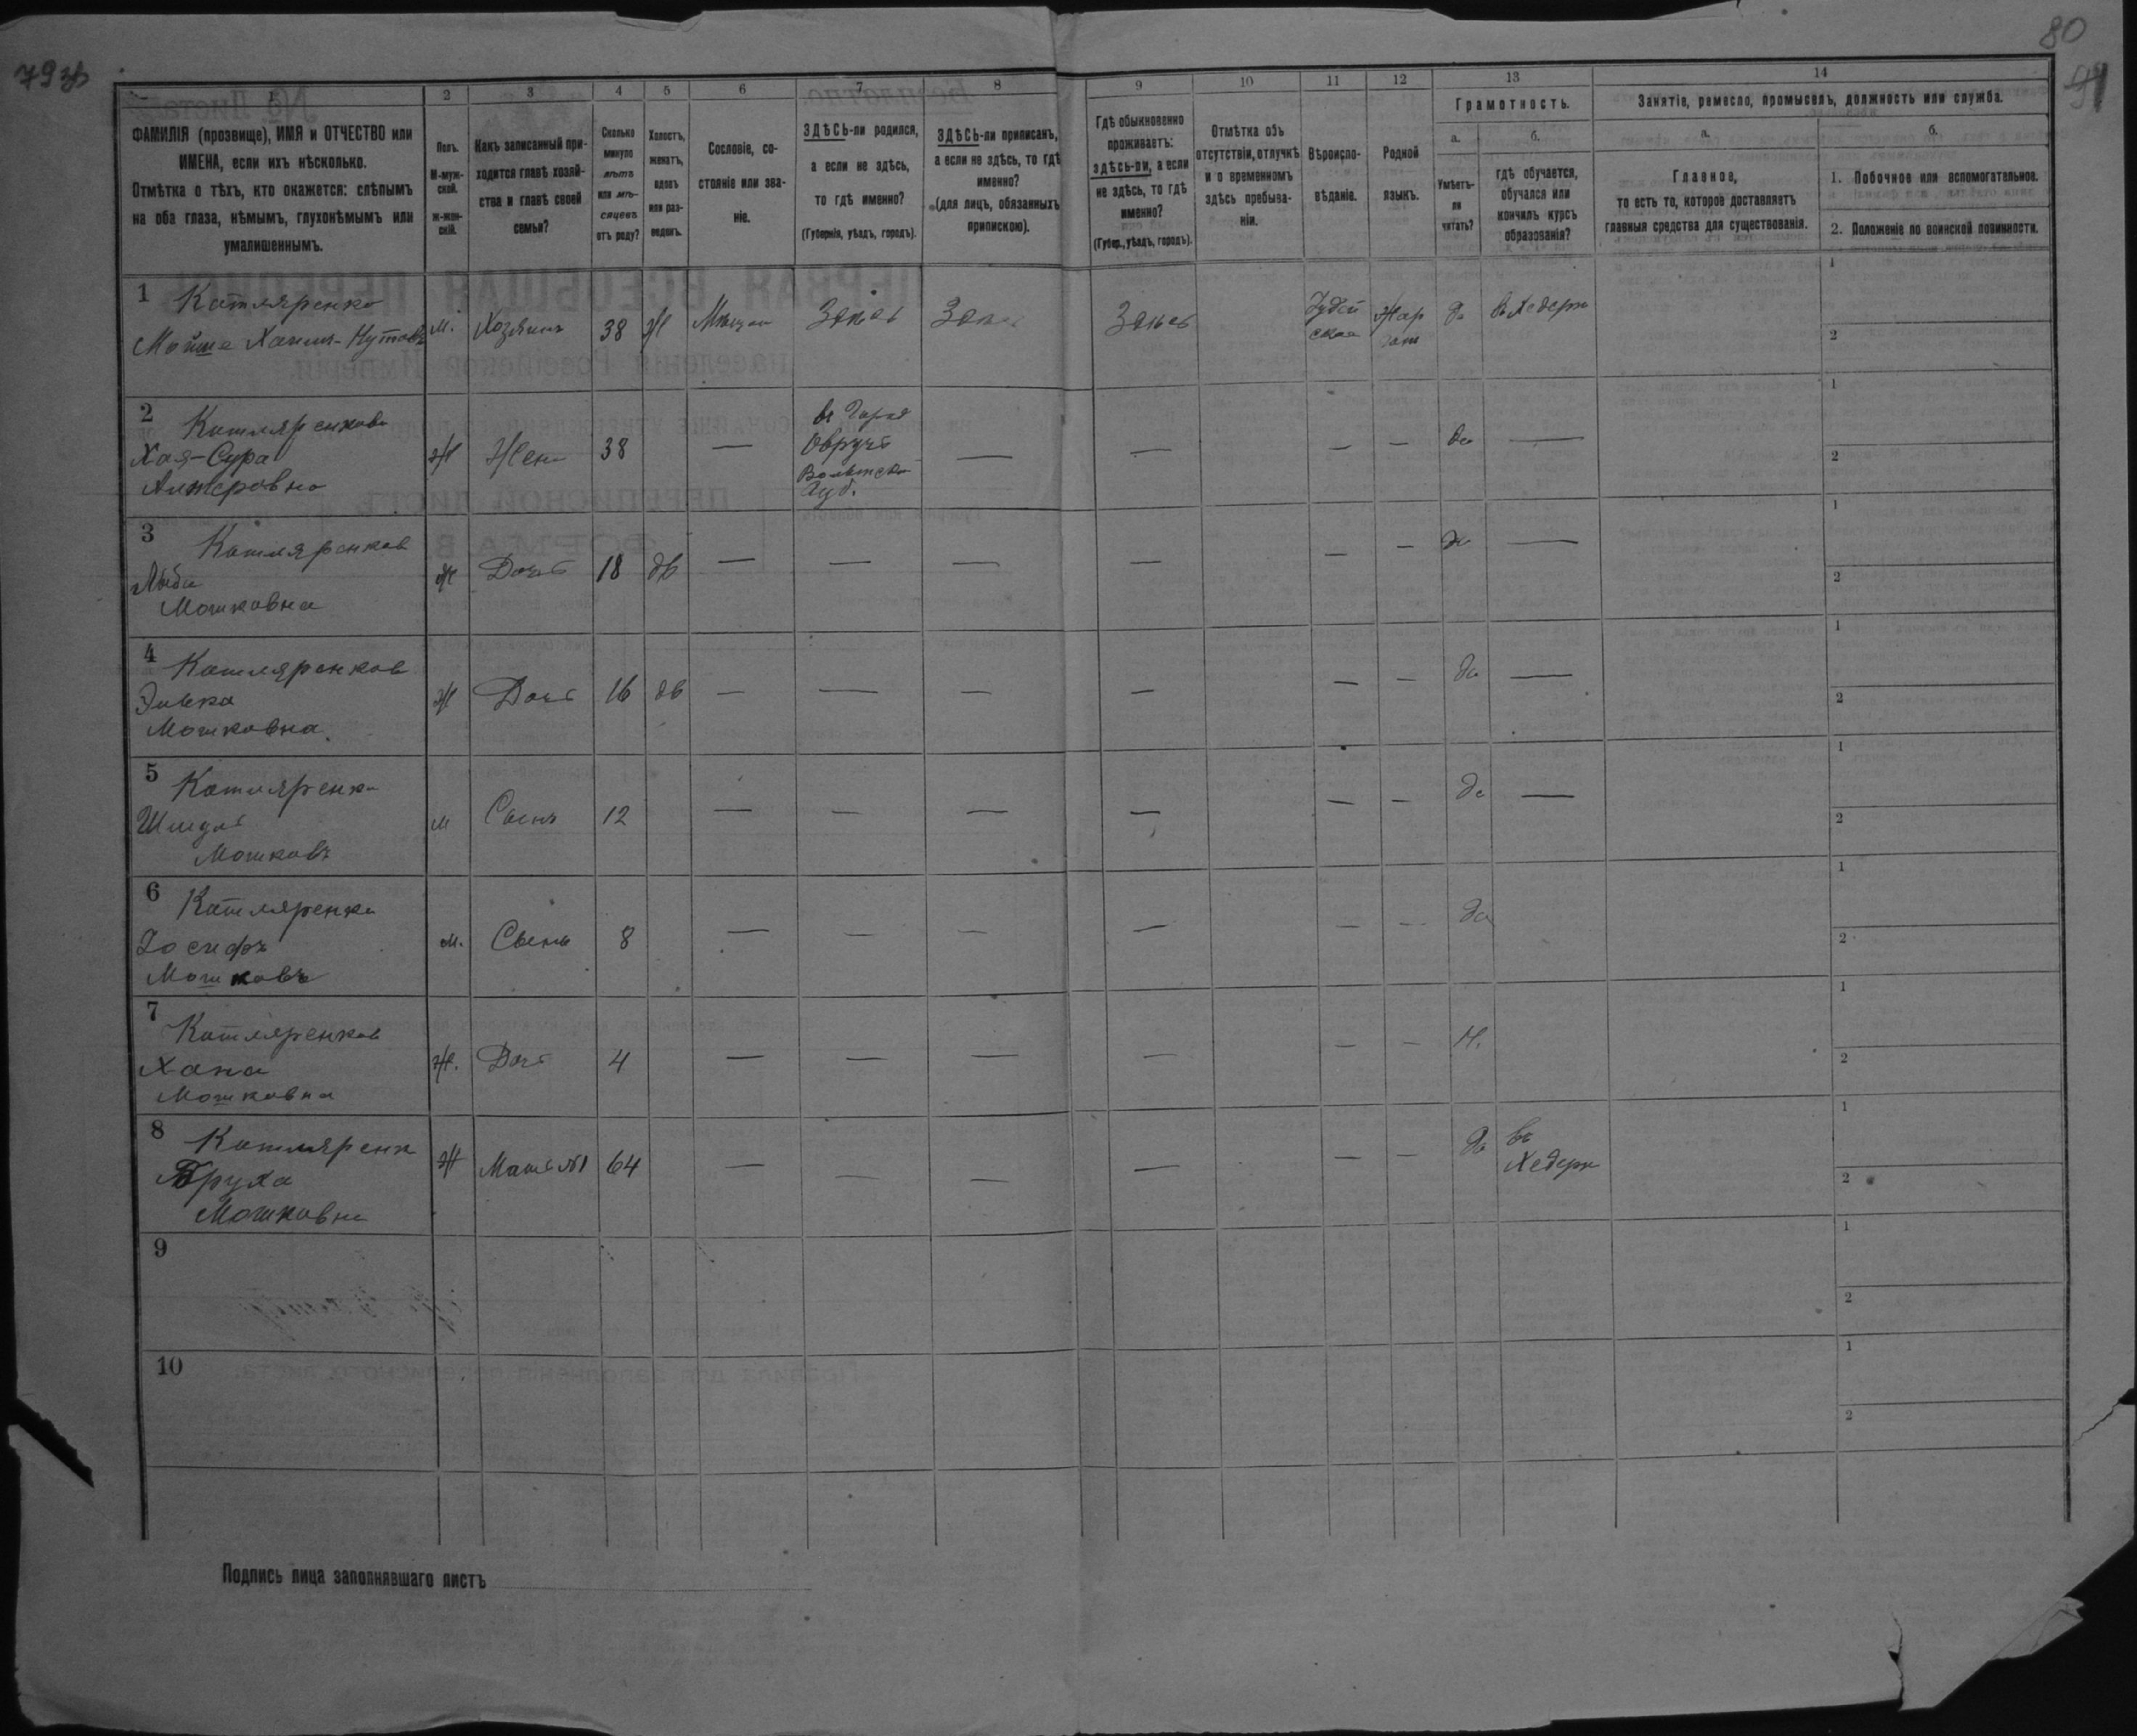 79 зв
80
1
2
3
4
5
6
7
8
9
10
11
12
13
14
ФАМИЛІЯ (прозвище), ИМЯ и ОТЧЕСТВО или
ИМЕНА, если ихъ нѣсколько.
Отмѣтка о тѣхъ, кто окажется: слѣпымъ
на оба глаза, нѣмымъ, глухонѣмымъ или
умалишеннымъ.
Полъ.
М-муж-
ской.
ж-жен-
скій.
Какъ записанный при-
ходится главѣ хозяй-
ства и главѣ своей
семьи?
Сколько
минуло
лѣтъ
или мѣ-
сяцевъ
отъ роду?
Холостъ,
женатъ,
вдовъ
или раз-
веденъ.
Сословіе, со-
стояніе или зва-
ніе.
ЗДѢСЬ-ли родился,
а если не здѣсь,
то гдѣ именно?
(Губернія, уѣздъ, городъ).
ЗДѢСЬ-ли приписанъ,
а если не здѣсь, то гдѣ
именно?
(для лицъ, обязанныхъ
припискою).
Гдѣ обыкновенно
проживаетъ:
здѣсь-ли, а если
не здѣсь, то гдѣ
именно?
(Губер., уѣздъ, городъ).
Отмѣтка объ
отсутствіи, отлучкѣ
и о временномъ
здѣсь пребыва-
ніи.
Вѣроиспо-
вѣданіе.
Родной
языкъ.
Грамотность.
а.
Умѣетъ-
ли
читать?
б.
гдѣ обучается,
обучался или
кончилъ курсъ
образованія?
Занятіе, ремесло, промыселъ, должность или служба.
а.
Главное,
то есть то, которое доставляетъ
главныя средства для существованія.
б.
1. Побочное или вспомогательное.
2. Положеніе по воинской повинности.
1 Котляренко
Мойше
м. Хозяинъ 38 Ж
Іудей
ская
Жар
гон
да въ Хедерѣ
1
2
2 Котляренкова
Хая-Сура
Ж Жена 38 —
въ Город
Овручь
Волынской
Губ.
— — — — да —
1
2
3 Котляренков
Мошковна
Ж Дочь 18 дв — — — — — — да —
1
2
4 Котляренков
Элька
Мошковна
Ж Дочь 16 дв — — — — — — да —
1
2
5 Котляренко
Шмуль
Мошковъ
м Сынъ 12 — — — — — — да —
1
2
6 Котляренко
Іосифъ
Мошковъ
м. Сынъ 8 — — — — — — да
1
2
7 Котляренков
Хана
Мошковна
Ж. Дочь 4 — — — — — — Н.
1
2
8 Котляренк
Бруха
Мошковна
Ж Мать №1 64 — — — — — — да въ
Хедерѣ
1
2
9
1
2
10
1
2
Подпись лица заполнявшаго листъ